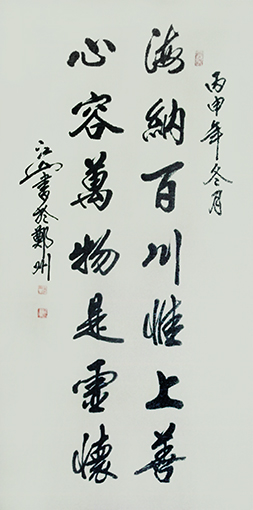 丙申年冬月
海納百川惟上善
心容萬物是霊懷
江山書於鄭州